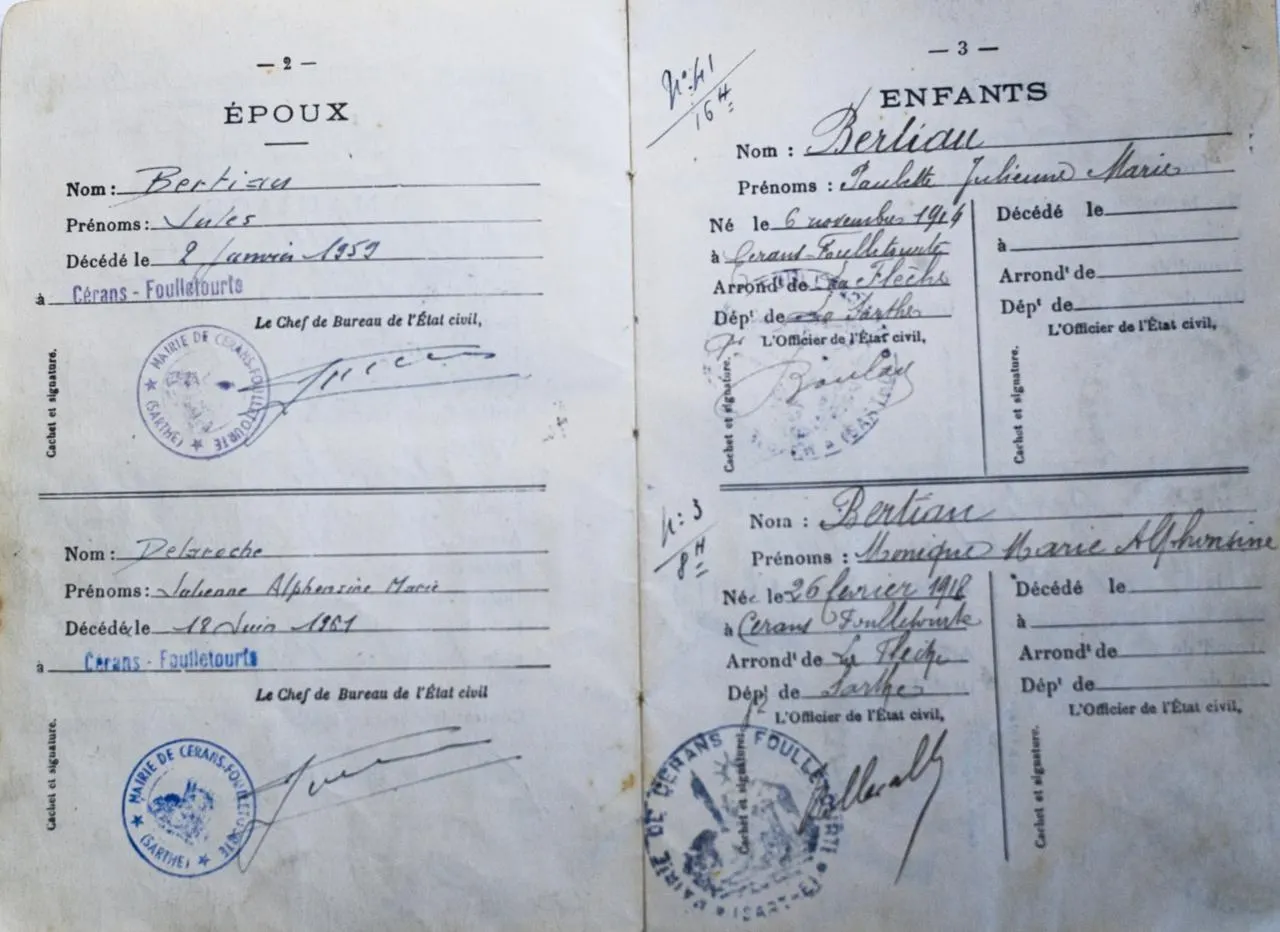 — 2 —
ÉPOUX
Nom : Bertiau
Prénoms : Jules
Décédé le 2 Janvier 1959
à Cérans - Foulletourte
Le Chef de Bureau de l'État civil,
Cachet et signature.
MAIRIE DE CÉRANS-FOULLETOURTE
(SARTHE)
Nom : Delaroche
Prénoms : Julienne Alphonsine Marie
Décédé le 18 Juin 1961
à Cérans - Foulletourte
Le Chef de Bureau de l'État civil
Cachet et signature.
MAIRIE DE CÉRANS-FOULLETOURTE
(SARTHE)
— 3 —
N° 41
16 H
ENFANTS
Nom : Bertiau
Prénoms : Paulette Julienne Marie
Né le 6 novembre 1914
à Cerans-Foulletourte
Arrond' de La Flèche
Dép' de La Sarthe
L'Officier de l'État civil,
Cachet et signature.
Décédé le
à
Arrond' de
Dép' de
L'Officier de l'État civil,
Cachet et signature.
n: 3
8 H
Nom : Bertiau
Prénoms : Monique Marie Alphonsine
Née le 26 fevrier 1918
à Cerans Foulletourte
Arrond' de La Fleche
Dép' de Sarthe
L'Officier de l'État civil,
Cachet et signature.
MAIRIE DE CERANS FOULLETOURTE
(SARTHE)
Décédé le
à
Arrond' de
Dép' de
L'Officier de l'État civil,
Cachet et signature.